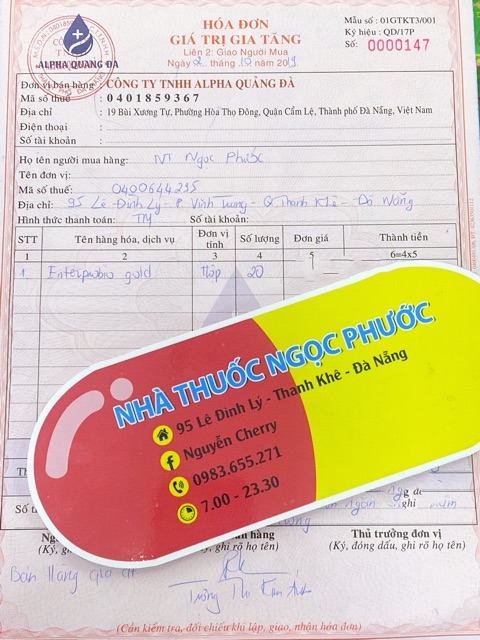 HÓA ĐƠN
GIÁ TRỊ GIA TĂNG
Liên 2: Giao Người Mua
Ngày 2 tháng 10 năm 2019
Mẫu số : 01GTKT3/001
Ký hiệu : QD/17P
Số: 0000147
ALPHA QUẢNG ĐÀ
Đơn vị bán hàng : CÔNG TY TNHH ALPHA QUẢNG ĐÀ
Mã số thuế : 0401859367
Địa chỉ : 19 Bùi Xương Tự, Phường Hòa Thọ Đông, Quận Cẩm Lệ, Thành phố Đà Nẵng, Việt Nam
Điện thoại :
Số tài khoản :
Họ tên người mua hàng: NT Ngọc Phước
Tên đơn vị:
Mã số thuế: 0400644295
Địa chỉ: 95 Lê Đình Lý - P. Vĩnh Trung - Q Thanh Khê - Đà Nẵng
Hình thức thanh toán: TM Số tài khoản:
STT Tên hàng hóa, dịch vụ Đơn vị tính Số lượng Đơn giá Thành tiền
1 2 3 4 5 6=4x5
1 Enterprobio gold Hộp 20
NHÀ THUỐC NGỌC PHƯỚC
95 Lê Đình Lý - Thanh Khê - Đà Nẵng
Nguyễn Cherry
0983.655.271
7.00 - 23.30
Thủ trưởng đơn vị
(Ký, ghi rõ họ tên) (Ký, đóng dấu, ghi rõ họ tên)
Bán Hàng
(Cần kiểm tra, đối chiếu khi lập, giao, nhận hóa đơn)